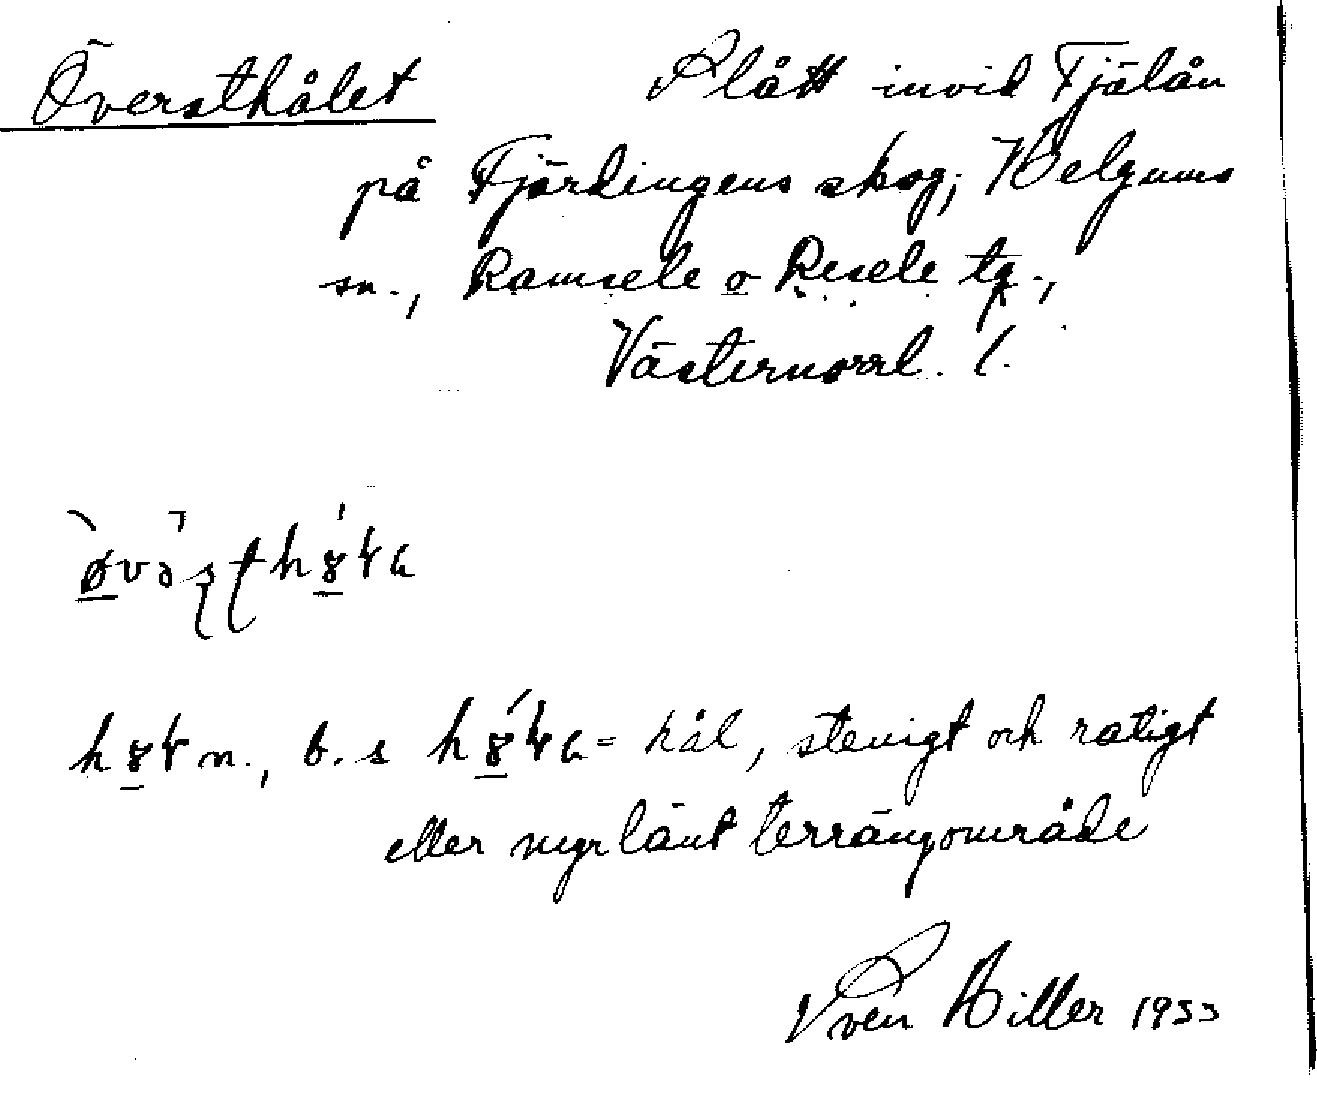 Översthålet Slått invid Fjälån
på Fjärdingens skog; Helgums
sn., Ramsele o Resele tg.,
Västernorrl. l.
hål, stenigt och
eller myrlänt terrängområde
Sven Hiller 1933